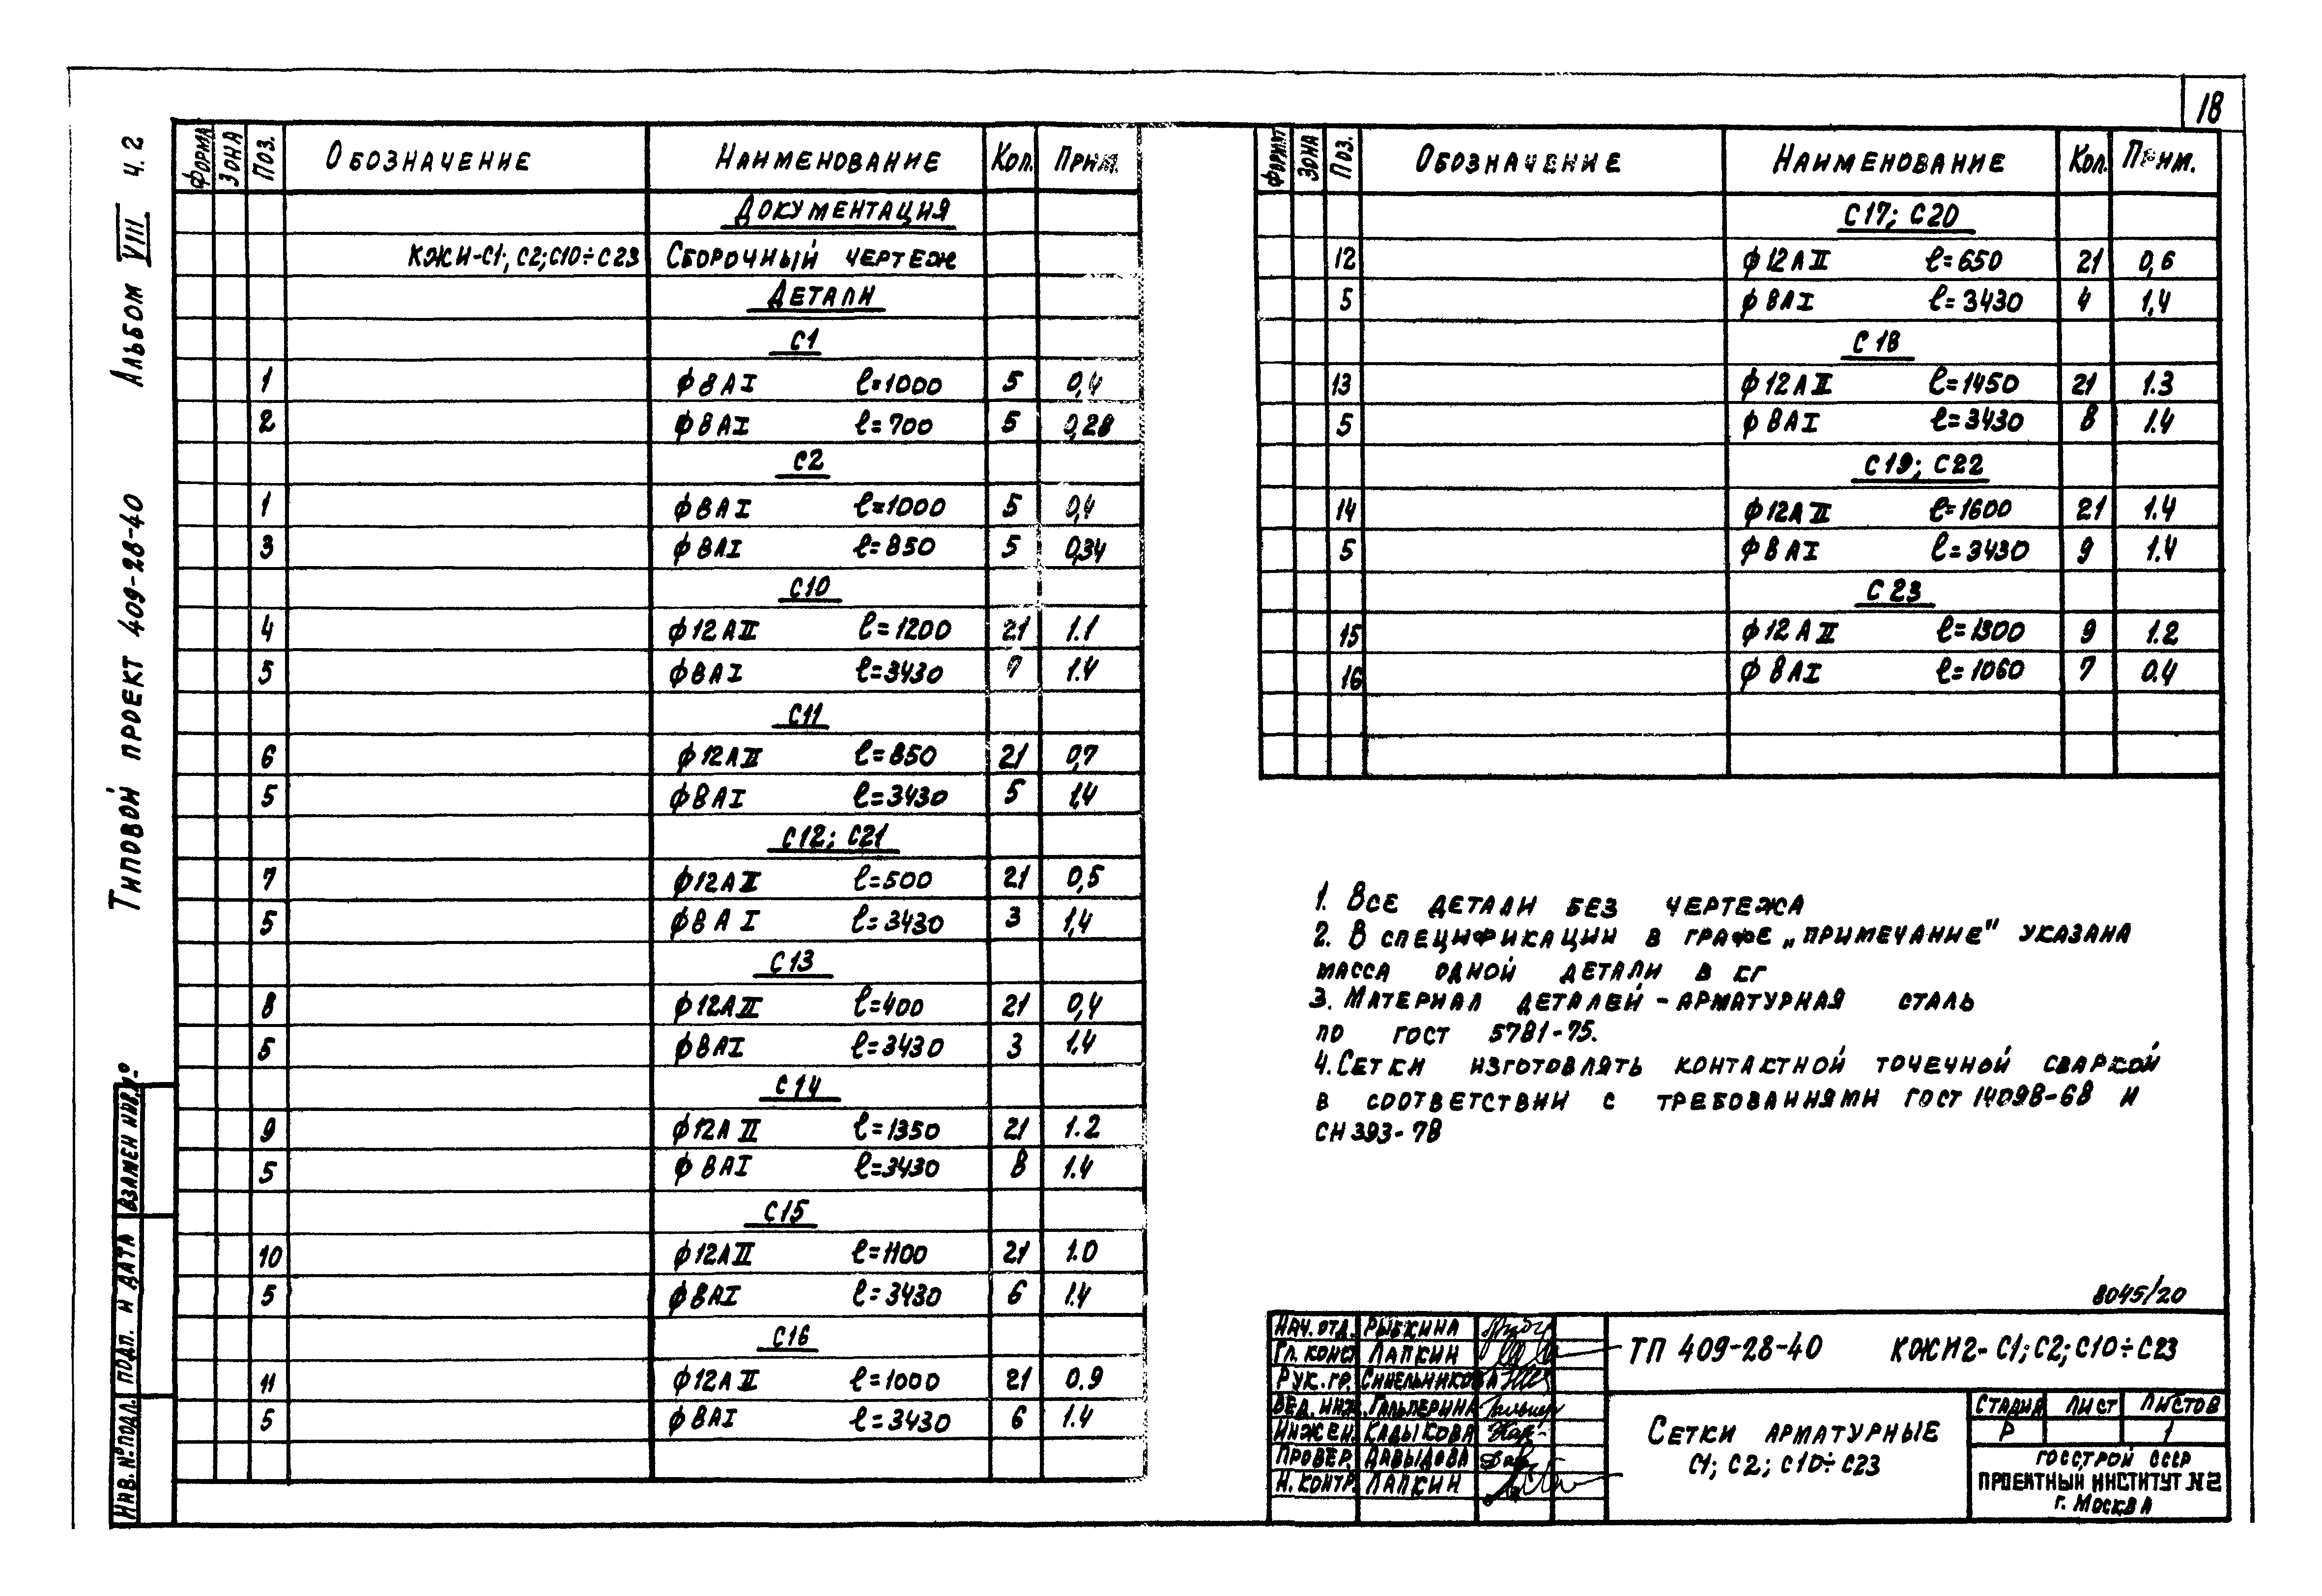 18
Типовой проект 409-28-40 Альбом VIII ч. 2
Формат Зона Поз. Обозначение Наименование Кол. Прим.
Документация
КЖИ-С1; С2; С10÷С23 Сборочный чертеж
Детали
С1
1 ф8АI ℓ=1000 5 0,4
2 ф8АI ℓ=700 5 0,28
С2
1 ф8АI ℓ=1000 5 0,4
3 ф8АI ℓ=850 5 0,34
С10
4 ф12АII ℓ=1200 21 1.1
5 ф8АI ℓ=3430 7 1.4
С11
6 ф12АII ℓ=850 21 0,7
5 ф8АI ℓ=3430 5 1,4
С12; С21
7 ф12АII ℓ=500 21 0,5
5 ф8АI ℓ=3430 3 1,4
С13
8 ф12АII ℓ=400 21 0,4
5 ф8АI ℓ=3430 3 1,4
С14
9 ф12АII ℓ=1350 21 1.2
5 ф8АI ℓ=3430 8 1.4
С15
10 ф12АII ℓ=1100 21 1.0
5 ф8АI ℓ=3430 6 1.4
С16
11 ф12АII ℓ=1000 21 0.9
5 ф8АI ℓ=3430 6 1.4
Формат Зона Поз. Обозначение Наименование Кол. Прим.
С17; С20
12 ф12АII ℓ=650 21 0,6
5 ф8АI ℓ=3430 4 1,4
С18
13 ф12АII ℓ=1450 21 1.3
5 ф8АI ℓ=3430 8 1.4
С19; С22
14 ф12АII ℓ=1600 21 1.4
5 ф8АI ℓ=3430 9 1.4
С23
15 ф12АII ℓ=1300 9 1.2
16 ф8АI ℓ=1060 7 0.4
1. Все детали без чертежа
2. В спецификации в графе „примечание" указана
масса одной детали в кг
3. Материал деталей - арматурная сталь
по ГОСТ 5781-75.
4. Сетки изготовлять контактной точечной сваркой
в соответствии с требованиями ГОСТ 14098-68 и
СН 393-78
8045/20
Нач. отд. Рыбкина
Гл. конс Лапкин
Рук. гр. Синельникова
Вед. инж. Гальперина
Инжен. Кадыкова
Провер. Давыдова
Н. контр. Лапкин
ТП 409-28-40 КЖИ2-С1; С2; С10÷С23
Сетки арматурные
С1; С2; С10÷С23
Стадия Лист Листов
Р 1
Госстрой СССР
Проектный институт №2
г. Москва
Инв. № подл. Подп. и дата Взамен инв. №